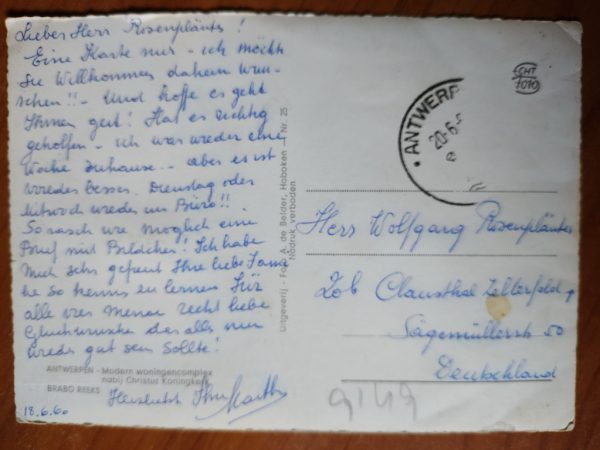 Lieber Herr Rosenpläntes!
Eine Karte nur - ich möcht
Sie Willkommen daheim wün-
schen!! - Und hoffe es geht
Ihnen gut! Hat es richtig
geholfen - ich war wieder eine
Woche zuhause - aber es ist
wieder besser. Dienstag oder
Mitwoch wieder im Büro!!
So rasch wie möglich eine
Brief mit Bildchen! Ich habe
mich sehr gefreut Ihre liebe Fami
lie so kennen zu lernen Für
alle vier meine recht liebe
Glückwünsche das alles nun
wieder gut sein sollte!
Herzlichst Ihre
18.6.60
ANTWERPEN - Modern woningencomplex
nabij Christus Koningkerk
BRABO REEKS
Uitgeverij - Foto A. de Belder, Hoboken - Nr. 25
Nadruk verboden
CHT
7070
ANTWERP
20-6-
Herr Wolfgang Rosenpläntes
Clausthal Zellerfeld
Sägemüllerstr 50
Deutschland